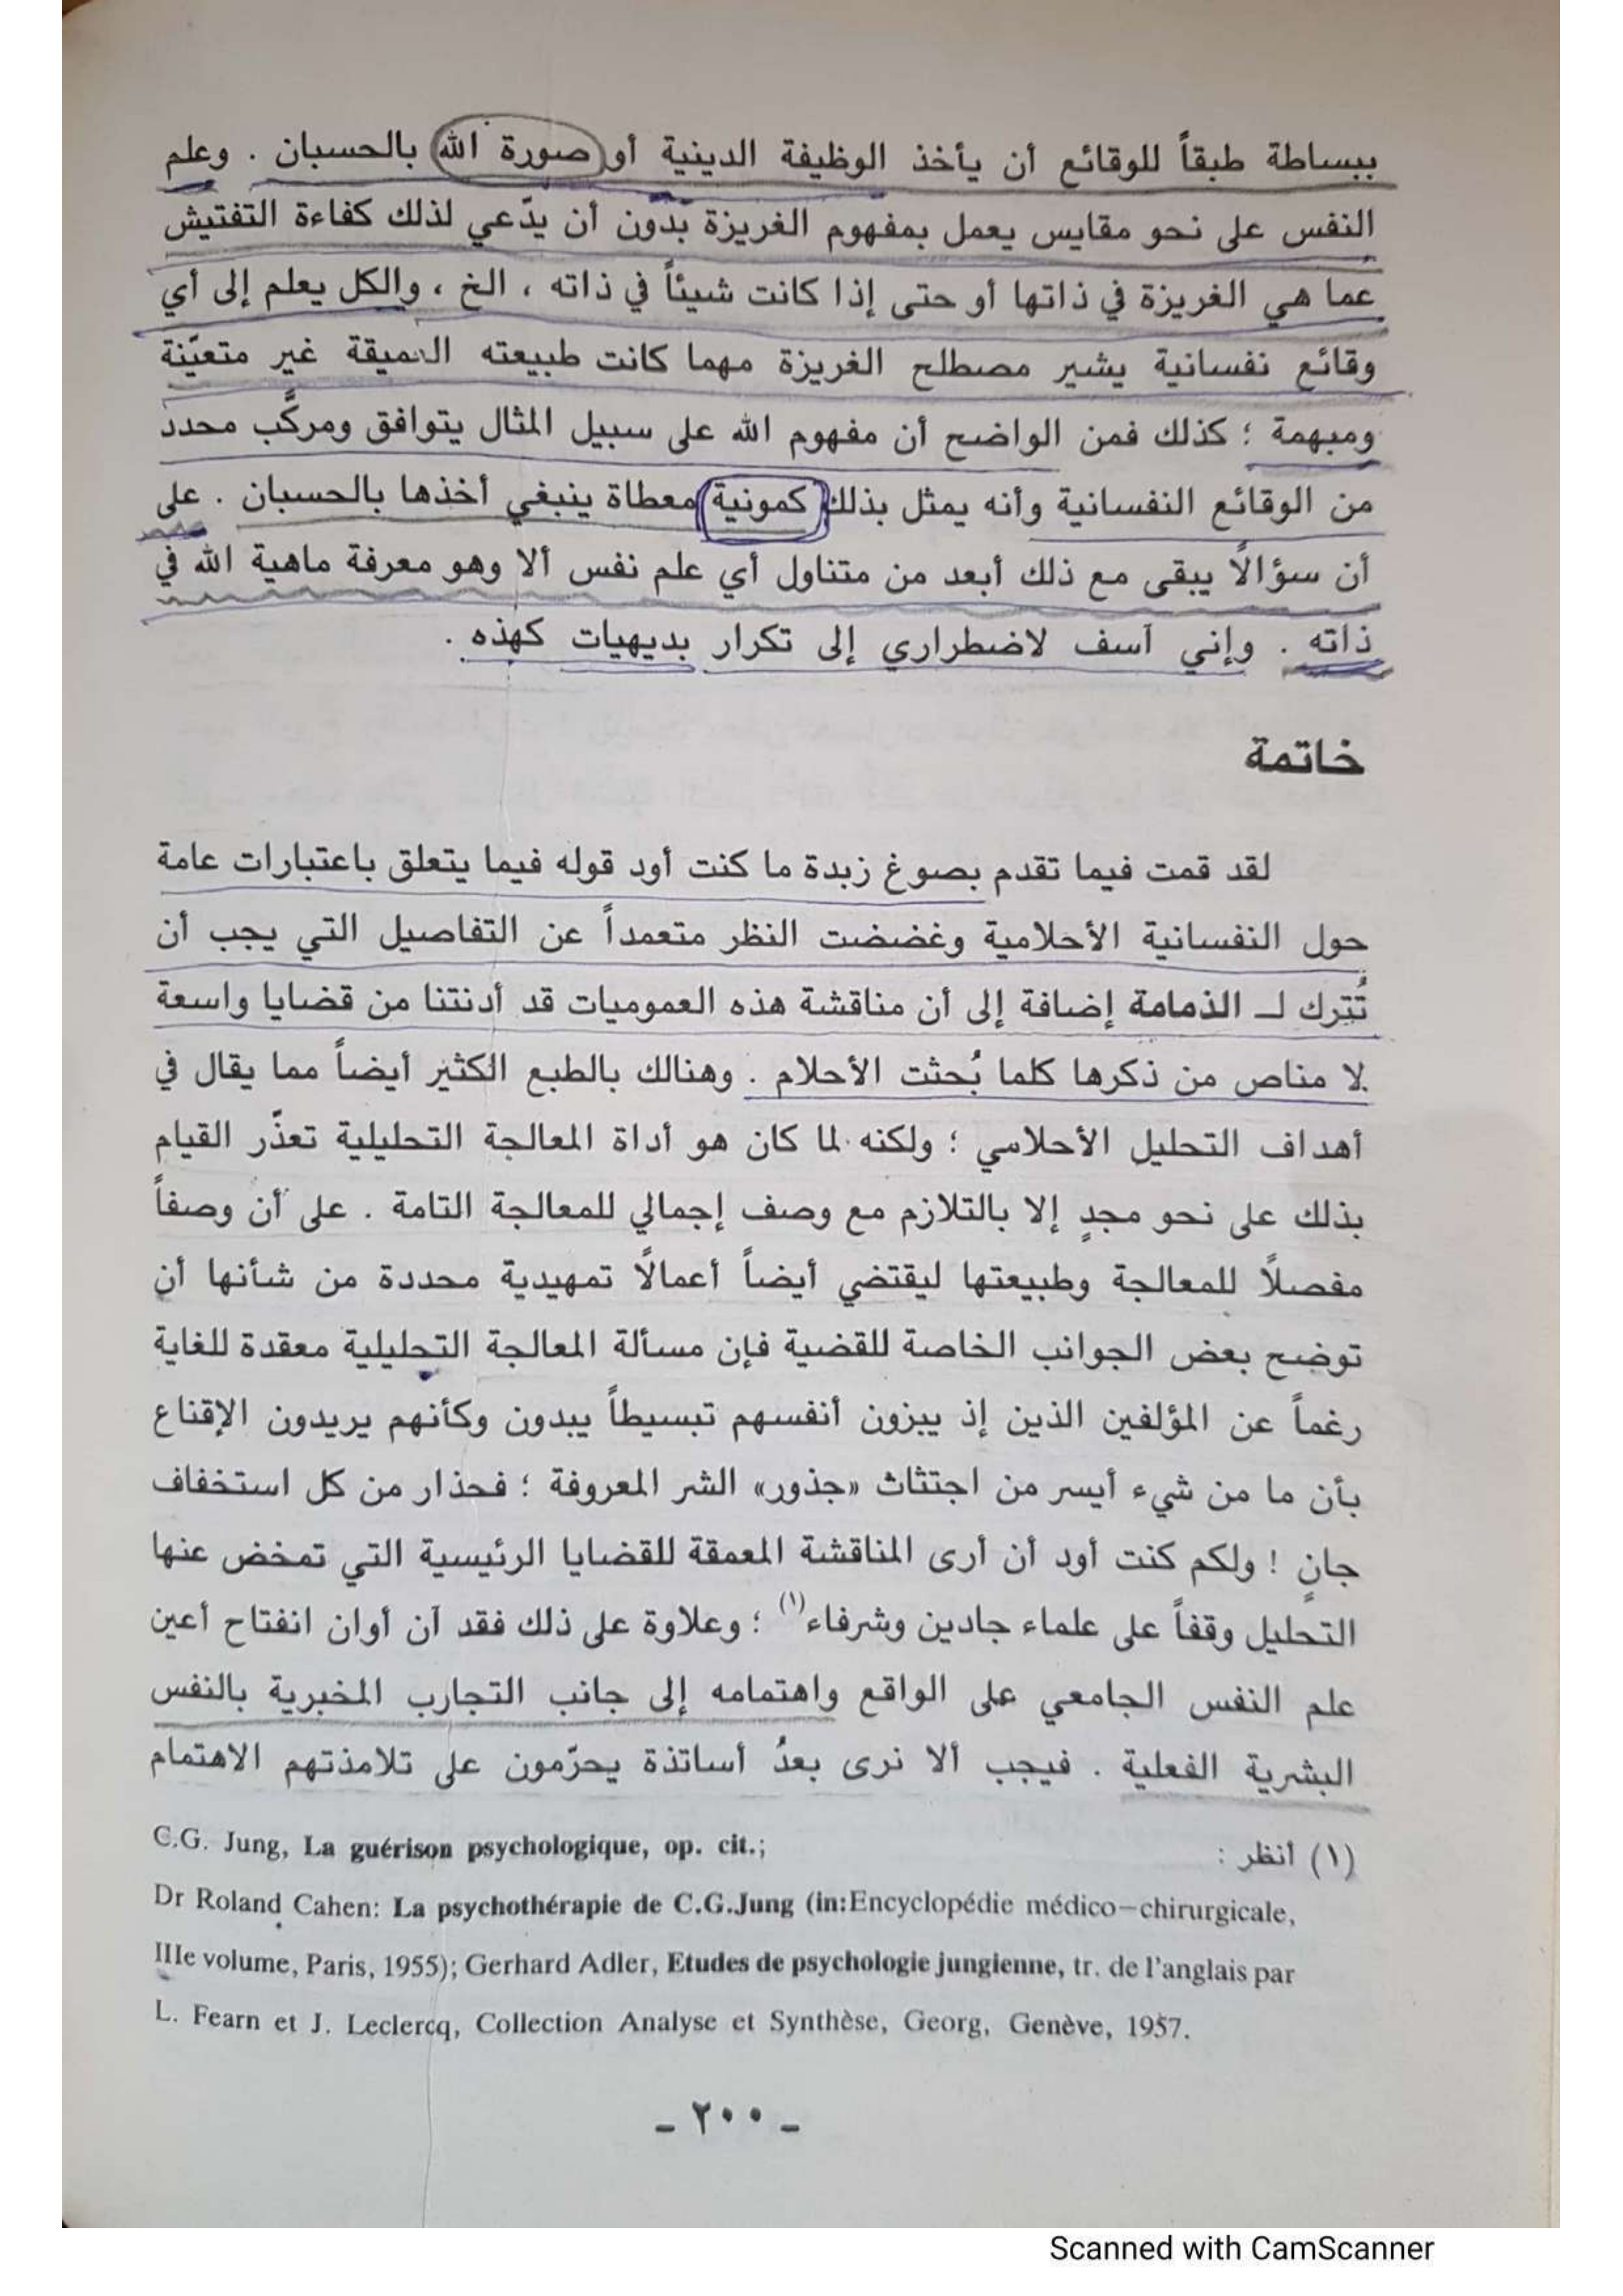 ببساطة طبقاً للوقائع أن يأخذ الوظيفة الدينية أو صورة الله بالحسبان . وعلم
النفس على نحو مقايس يعمل بمفهوم الغريزة بدون أن يدّعي لذلك كفاءة التفتيش
عما هي الغريزة في ذاتها أو حتى إذا كانت شيئاً في ذاته ، الخ ، والكل يعلم إلى أي
وقائع نفسانية يشير مصطلح الغريزة مهما كانت طبيعته العميقة غير متعيّنة
ومبهمة ؛ كذلك فمن الواضح أن مفهوم الله على سبيل المثال يتوافق ومركَّب محدد
من الوقائع النفسانية وأنه يمثل بذلك كمونية معطاة ينبغي أخذها بالحسبان . على
أن سؤالًا يبقى مع ذلك أبعد من متناول أي علم نفس ألا وهو معرفة ماهية الله في
ذاته . وإني آسف لاضطراري إلى تكرار بديهيات كهذه .
خاتمة
لقد قمت فيما تقدم بصوغ زبدة ما كنت أود قوله فيما يتعلق باعتبارات عامة
حول النفسانية الأحلامية وغضضت النظر متعمداً عن التفاصيل التي يجب أن
تُترك لـ الذمامة إضافة إلى أن مناقشة هذه العموميات قد أدنتنا من قضايا واسعة
لا مناص من ذكرها كلما بُحثت الأحلام . وهنالك بالطبع الكثير أيضاً مما يقال في
أهداف التحليل الأحلامي ؛ ولكنه لما كان هو أداة المعالجة التحليلية تعذّر القيام
بذلك على نحو مجدٍ إلا بالتلازم مع وصف إجمالي للمعالجة التامة . على أن وصفاً
مفصلًا للمعالجة وطبيعتها ليقتضي أيضاً أعمالًا تمهيدية محددة من شأنها أن
توضح بعض الجوانب الخاصة للقضية فإن مسألة المعالجة التحليلية معقدة للغاية
رغماً عن المؤلفين الذين إذ يبزون أنفسهم تبسيطاً يبدون وكأنهم يريدون الإقناع
بأن ما من شيء أيسر من اجتثاث «جذور» الشر المعروفة ؛ فحذار من كل استخفاف
جانٍ ! ولكم كنت أود أن أرى المناقشة المعمقة للقضايا الرئيسية التي تمخض عنها
التحليل وقفاً على علماء جادين وشرفاء(١) ؛ وعلاوة على ذلك فقد آن أوان انفتاح أعين
علم النفس الجامعي على الواقع واهتمامه إلى جانب التجارب المخبرية بالنفس
البشرية الفعلية . فيجب ألا نرى بعدُ أساتذة يحرّمون على تلامذتهم الاهتمام
(١) أنظر : C.G. Jung, La guérison psychologique, op. cit.;
Dr Roland Cahen: La psychothérapie de C.G.Jung (in:Encyclopédie médico-chirurgicale,
IIIe volume, Paris, 1955); Gerhard Adler, Etudes de psychologie jungienne, tr. de l'anglais par
L. Fearn et J. Leclercq, Collection Analyse et Synthèse, Georg, Genève, 1957.
- ٢٠٠ -
Scanned with CamScanner